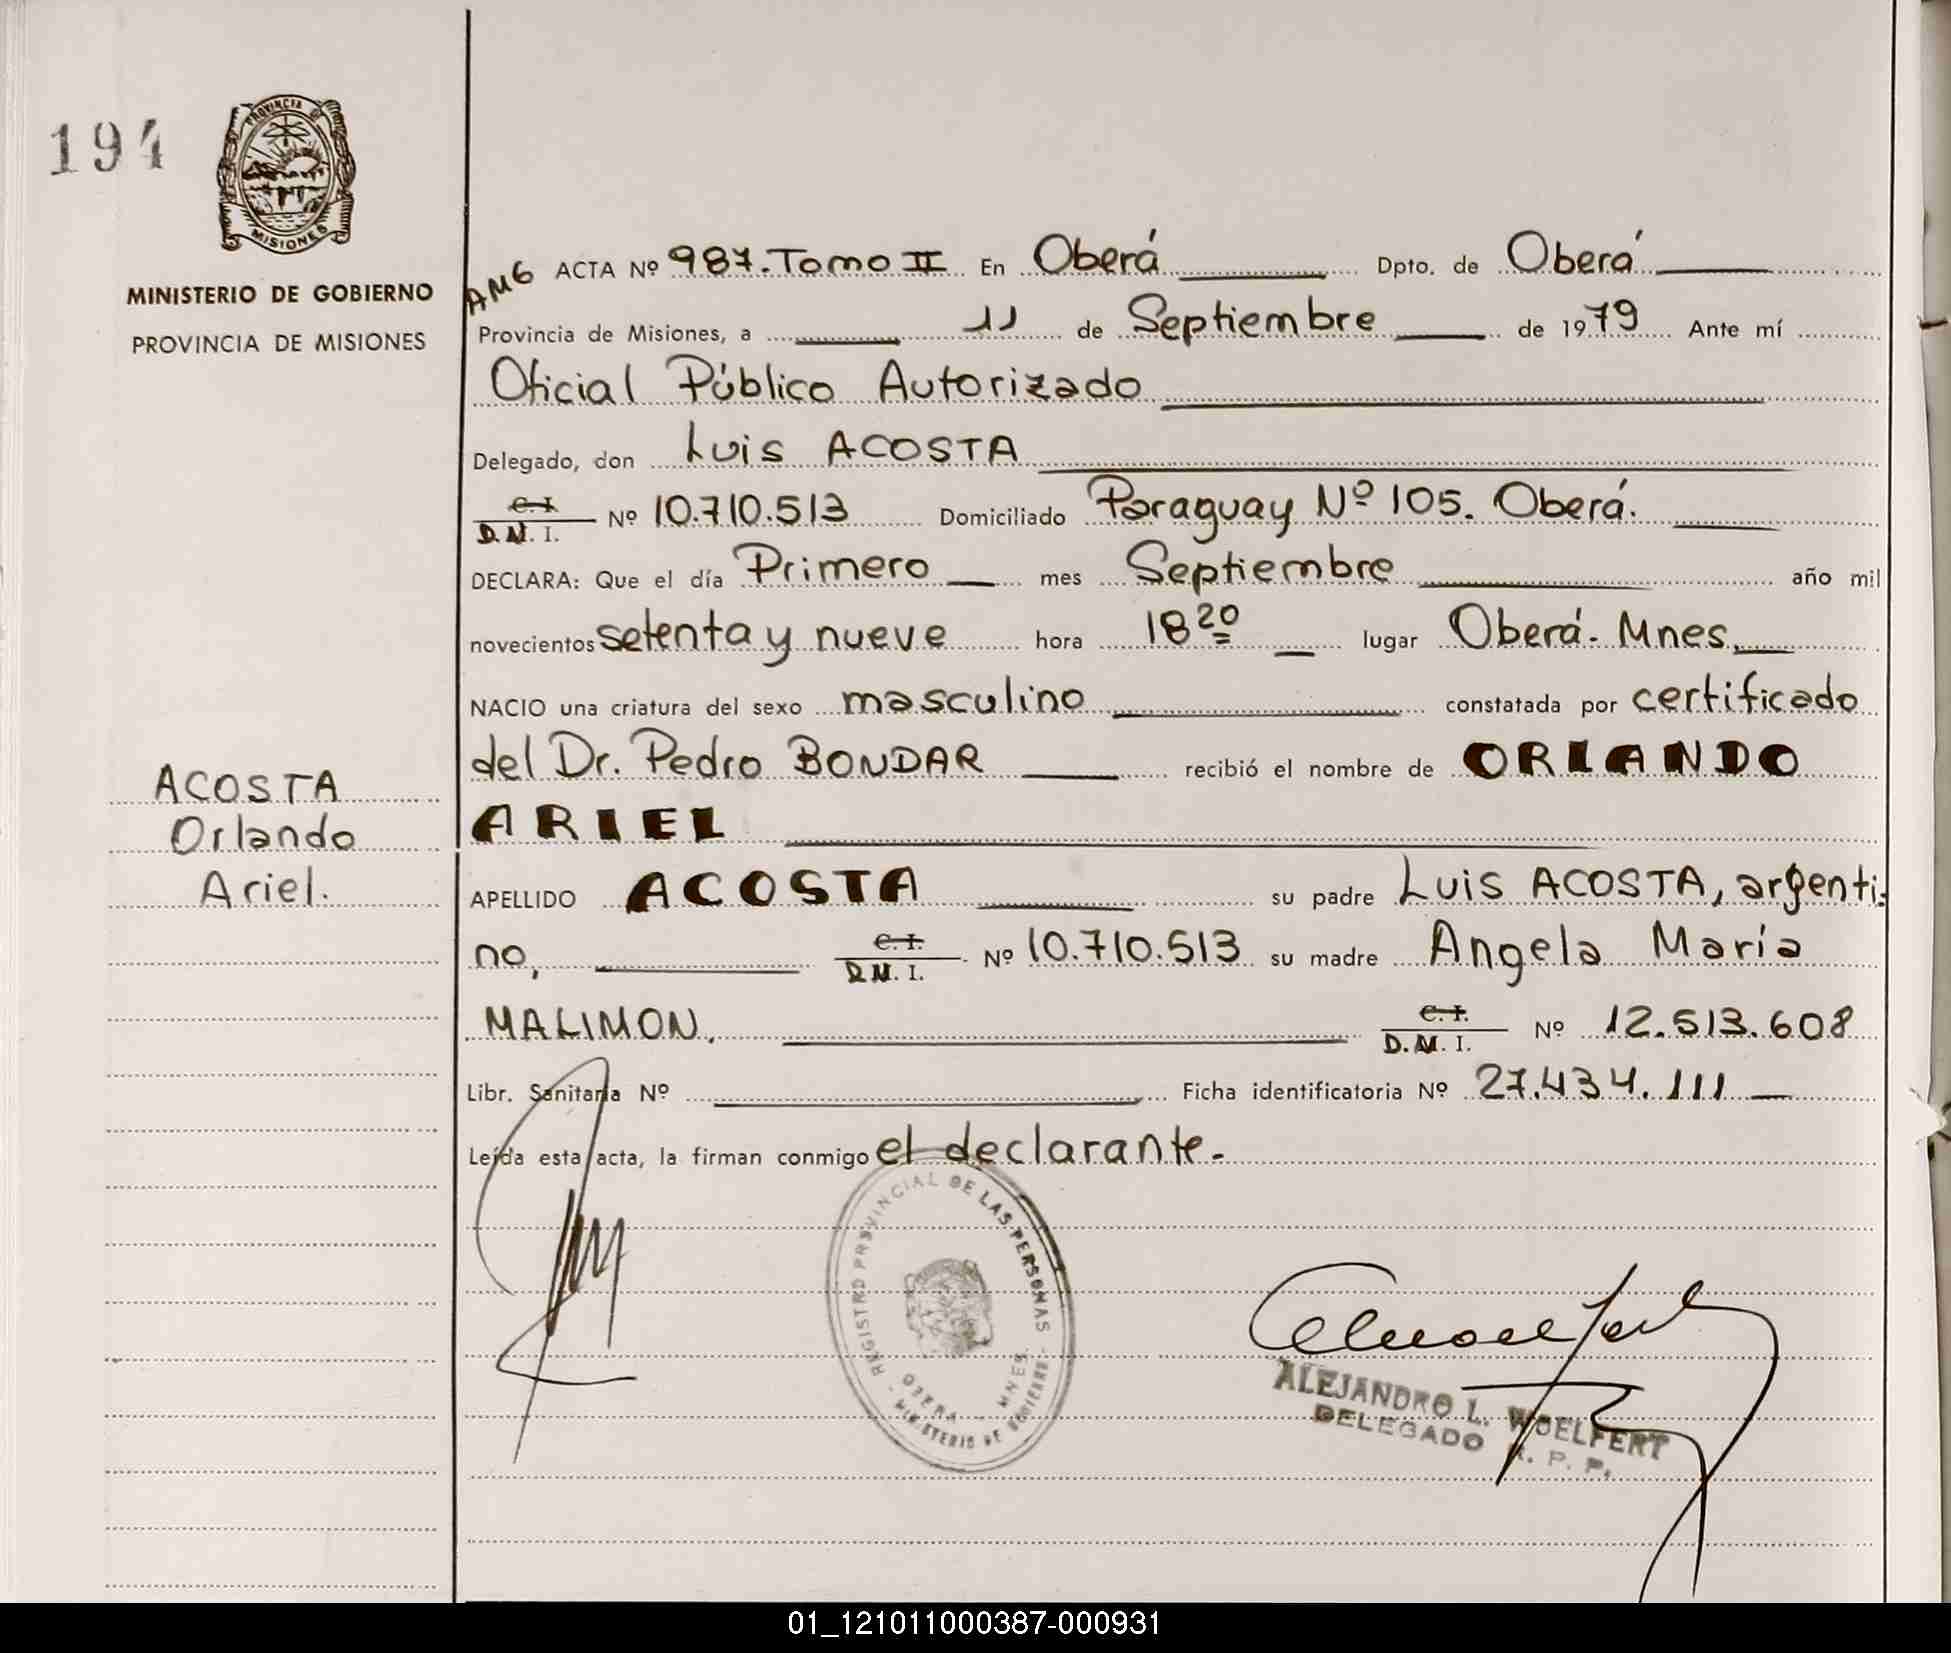 194
PROVINCIA DE
MISIONES
MINISTERIO DE GOBIERNO
PROVINCIA DE MISIONES
ACOSTA
Orlando
Ariel.
AMG ACTA Nº 987. Tomo II En Oberá Dpto. de Oberá
Provincia de Misiones, a 11 de Septiembre de 1979 Ante mí
Oficial Público Autorizado
Delegado, don Luis ACOSTA
C. I. D. N. I. Nº 10.710.513 Domiciliado Paraguay Nº 105. Oberá.
DECLARA: Que el día Primero mes Septiembre año mil
novecientos setenta y nueve hora 18 20 lugar Oberá. Mnes.
NACIO una criatura del sexo masculino constatada por certificado
del Dr. Pedro BONDAR recibió el nombre de ORLANDO
ARIEL
APELLIDO ACOSTA su padre Luis ACOSTA, argenti-
no, C. I. D. N. I. Nº 10.710.513 su madre Angela María
MALIMON. C. I. D. N. I. Nº 12.513.608
Libr. Sanitaria Nº Ficha identificatoria Nº 27.434.111
Leída esta acta, la firman conmigo el declarante.-
REGISTRO PROVINCIAL DE LAS PERSONAS
OBERA - MNES.
- MINISTERIO DE GOBIERNO -
ALEJANDRO L. WOELFERT
DELEGADO R. P. P.
01_121011000387-000931